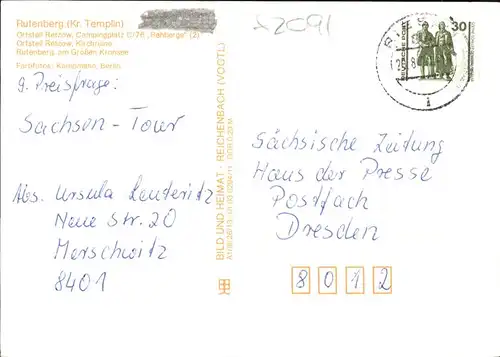 Rutenberg (Kr. Templin)
Ortsteil Retzow, Campingplatz C/76 „Rehberge“ (2)
Ortsteil Retzow, Kirchruine
Rutenberg am Großen Kronsee
Farbfotos: Kampmann, Berlin
9. Preisfrage:
Sachsen - Tour
Abs. Ursula Lauteritz
Neue Str. 20
Merschwitz
8401
BILD UND HEIMAT · REICHENBACH (VOGTL)
x2091
DEUTSCHE POST
30
Sächsische Zeitung
Haus der Presse
Postfach
Dresden
8012